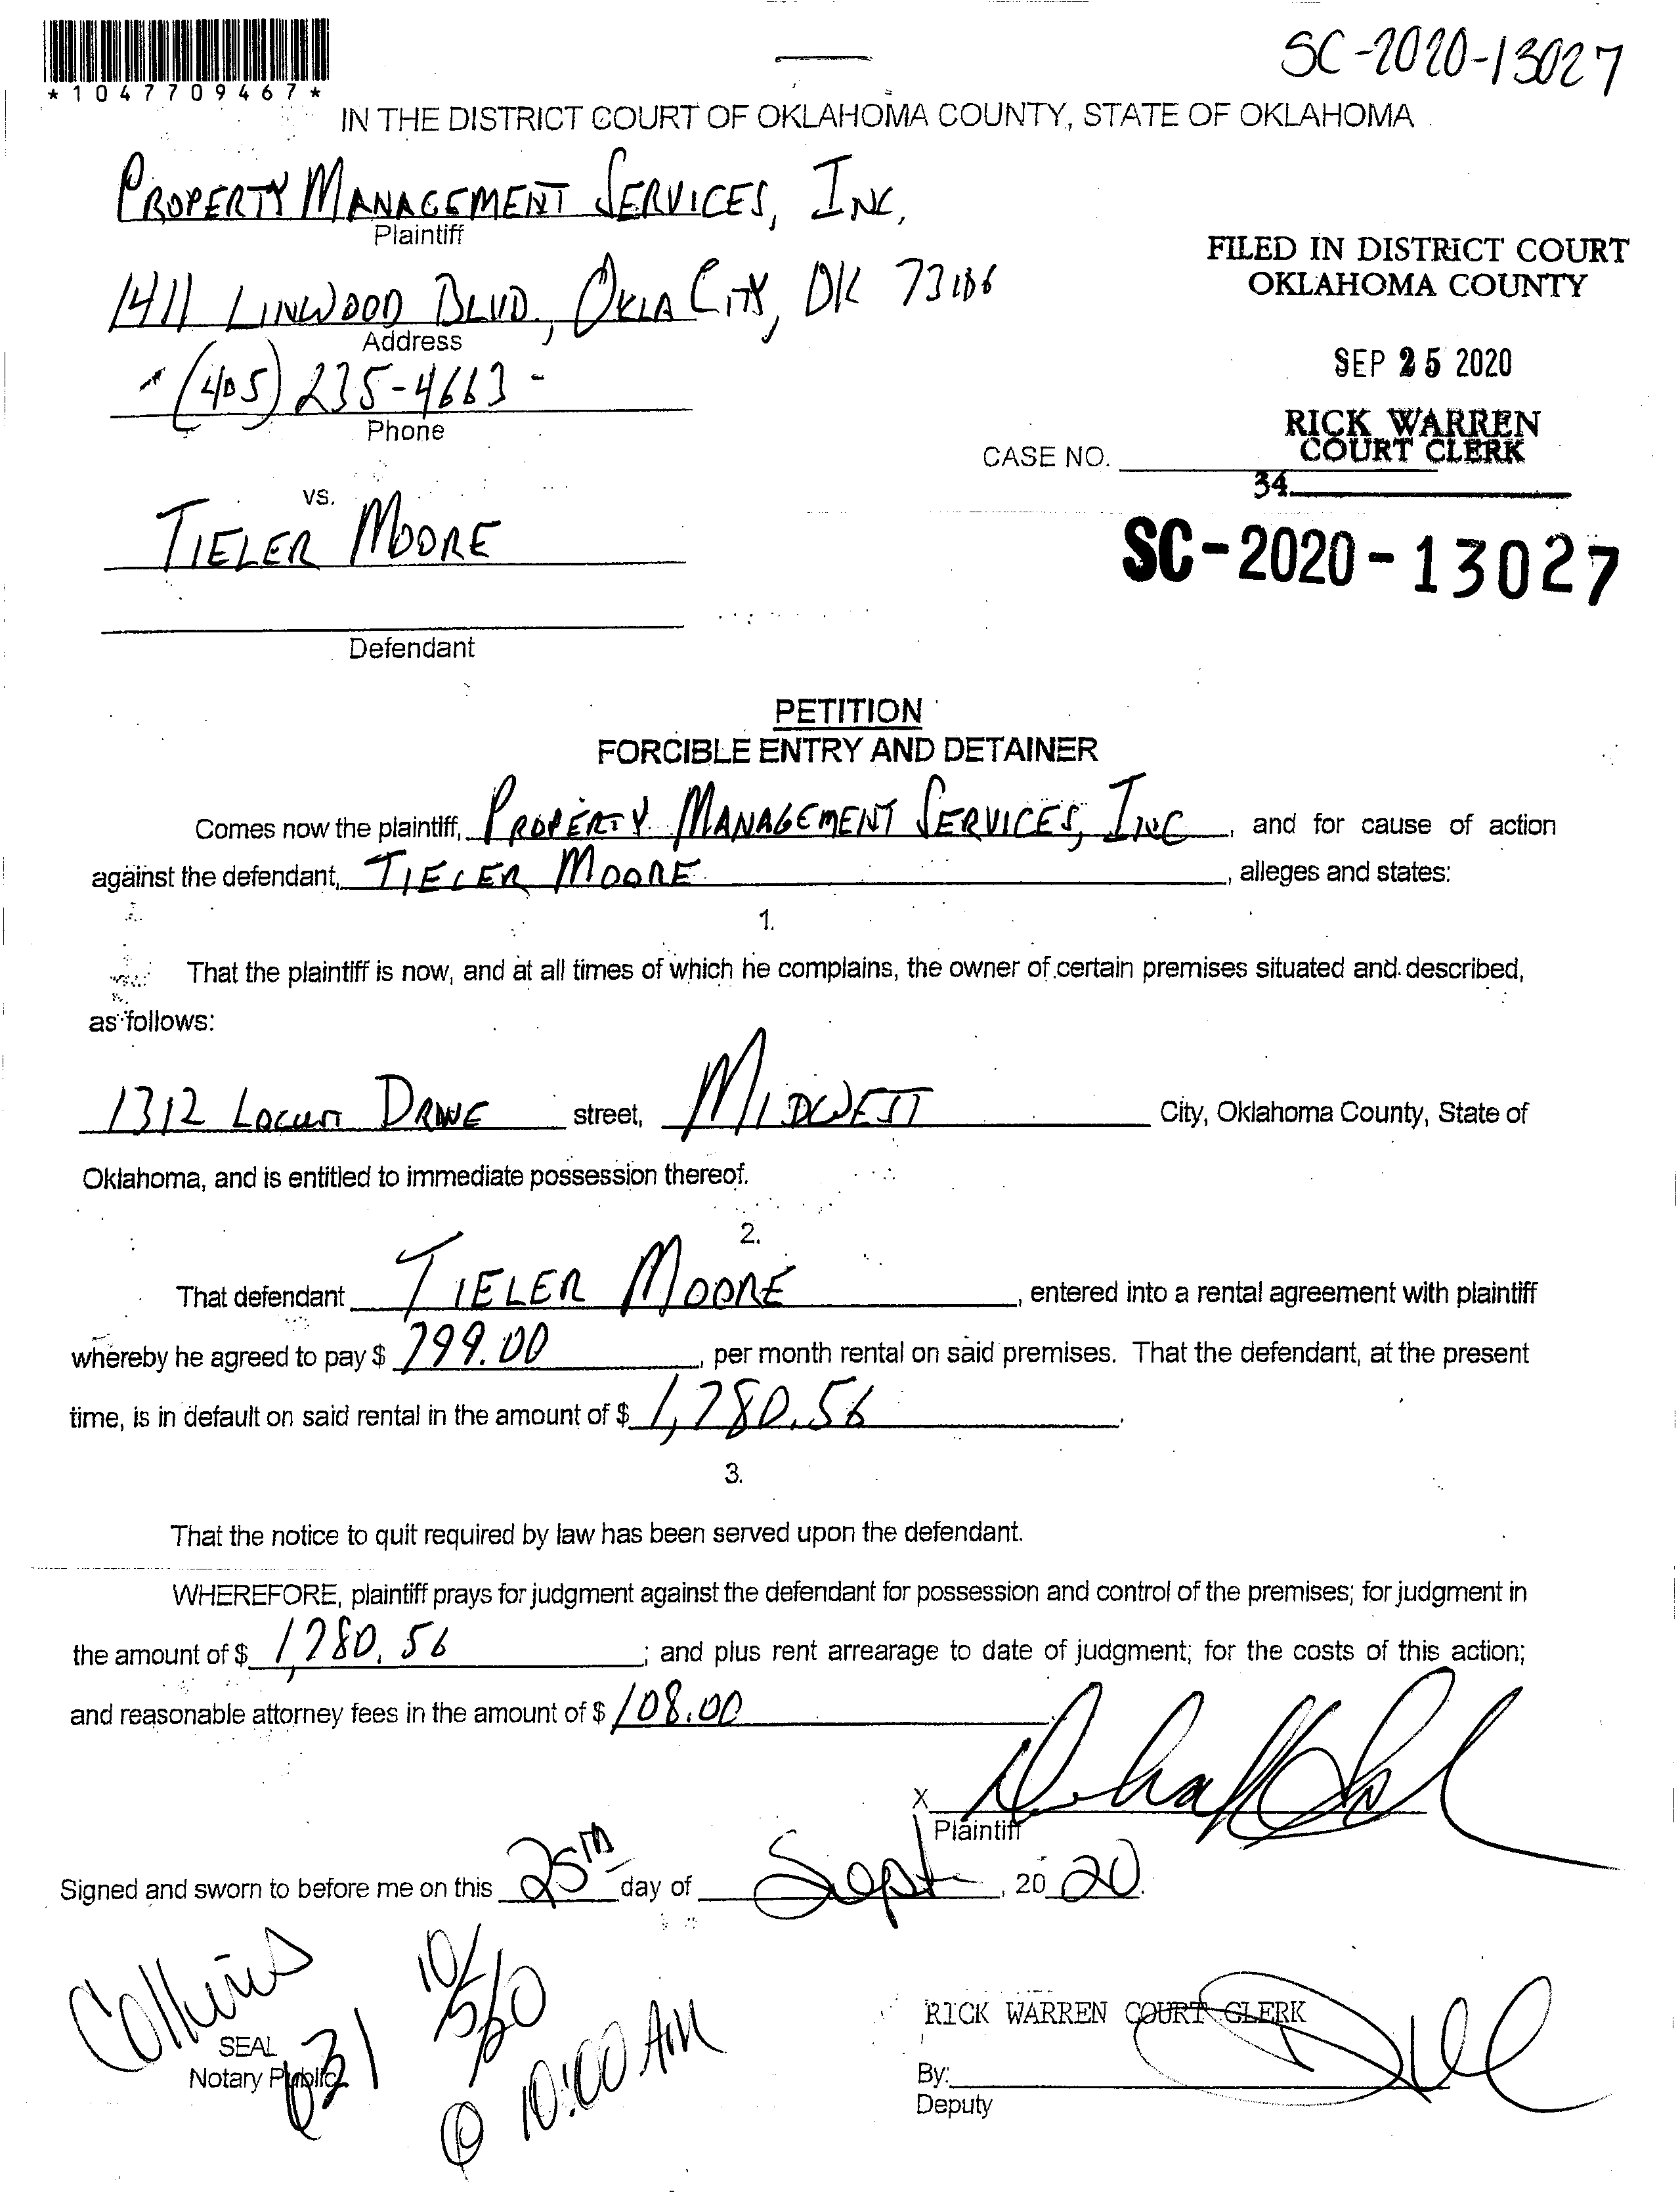 *1047709467*
SC-2020-13027
IN THE DISTRICT COURT OF OKLAHOMA COUNTY, STATE OF OKLAHOMA
PROPERTY MANAGEMENT SERVICES, INC.
Plaintiff
FILED IN DISTRICT COURT
OKLAHOMA COUNTY
1411 LINWOOD BLVD., OKLA CITY, OK 73106
Address
SEP 25 2020
(405) 235-4663
Phone
RICK WARREN
COURT CLERK
CASE NO.
34
vs.
TIELER MOORE
SC-2020-13027
Defendant
PETITION
FORCIBLE ENTRY AND DETAINER
Comes now the plaintiff, PROPERTY MANAGEMENT SERVICES, INC, and for cause of action
against the defendant, TIELER MOORE, alleges and states:
1.
That the plaintiff is now, and at all times of which he complains, the owner of certain premises situated and described,
as follows:
1312 LOCUST DRIVE street, MIDWEST City, Oklahoma County, State of
Oklahoma, and is entitled to immediate possession thereof.
2.
That defendant TIELER MOORE, entered into a rental agreement with plaintiff
whereby he agreed to pay $ 799.00, per month rental on said premises. That the defendant, at the present
time, is in default on said rental in the amount of $ 1,780.56.
3.
That the notice to quit required by law has been served upon the defendant.
WHEREFORE, plaintiff prays for judgment against the defendant for possession and control of the premises; for judgment in
the amount of $ 1,780.56; and plus rent arrearage to date of judgment; for the costs of this action;
and reasonable attorney fees in the amount of $ 108.00.
X
Plaintiff
Signed and sworn to before me on this 25th day of Sept, 20 20.
Collins
631
10/5/20
@ 10:00 AM
SEAL
Notary Public
RICK WARREN COURT CLERK
By:
Deputy